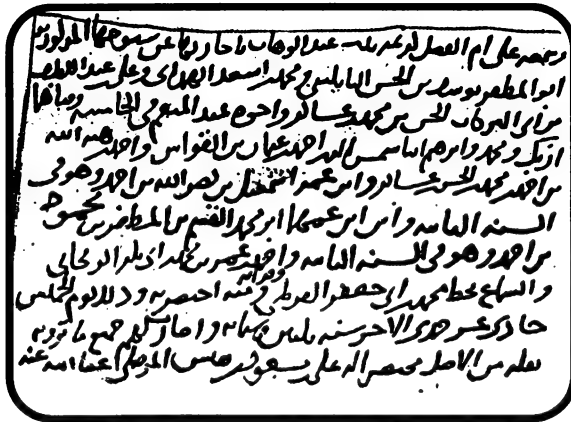 وسمعه على ام الفضل كريمة بنت عبد الوهاب باجازتها عن مسموعها
ابو المظفر يوسف بن الحسن النابلسي ومحمد بن اسعد الهمداني وعلي بن عبد اللطيف
بن ابي البركات الحسن بن محمد بن عساكر واخوه عبد المنعم في الخامسة
ازبك ومحمد وابرهيم ابنا شمس الدين احمد بن عثمان بن القواس واحمد بن هبة الله
بن احمد بن محمد بن الحسن بن عساكر وابن عمه اسمعيل بن نصر الله بن احمد وهو في
السنة الثامنة وابن ابن عمهما ابو محمد القسم بن المظفر بن محمود
بن احمد وهو في السنة الثامنة واحمد بن عمر بن محمد
والسماع بخط محمد بن ابي جعفر القرطبي ومنه اختصرته وذلك يوم الخميس
حادي عشر جمادى الاخر سنة ثلثين وستمائة واجازت لهم جميع ما ترويه
نقله من الاصل مختصرا له علي بن مسعود بن نفيس الموصلي عفا الله عنه